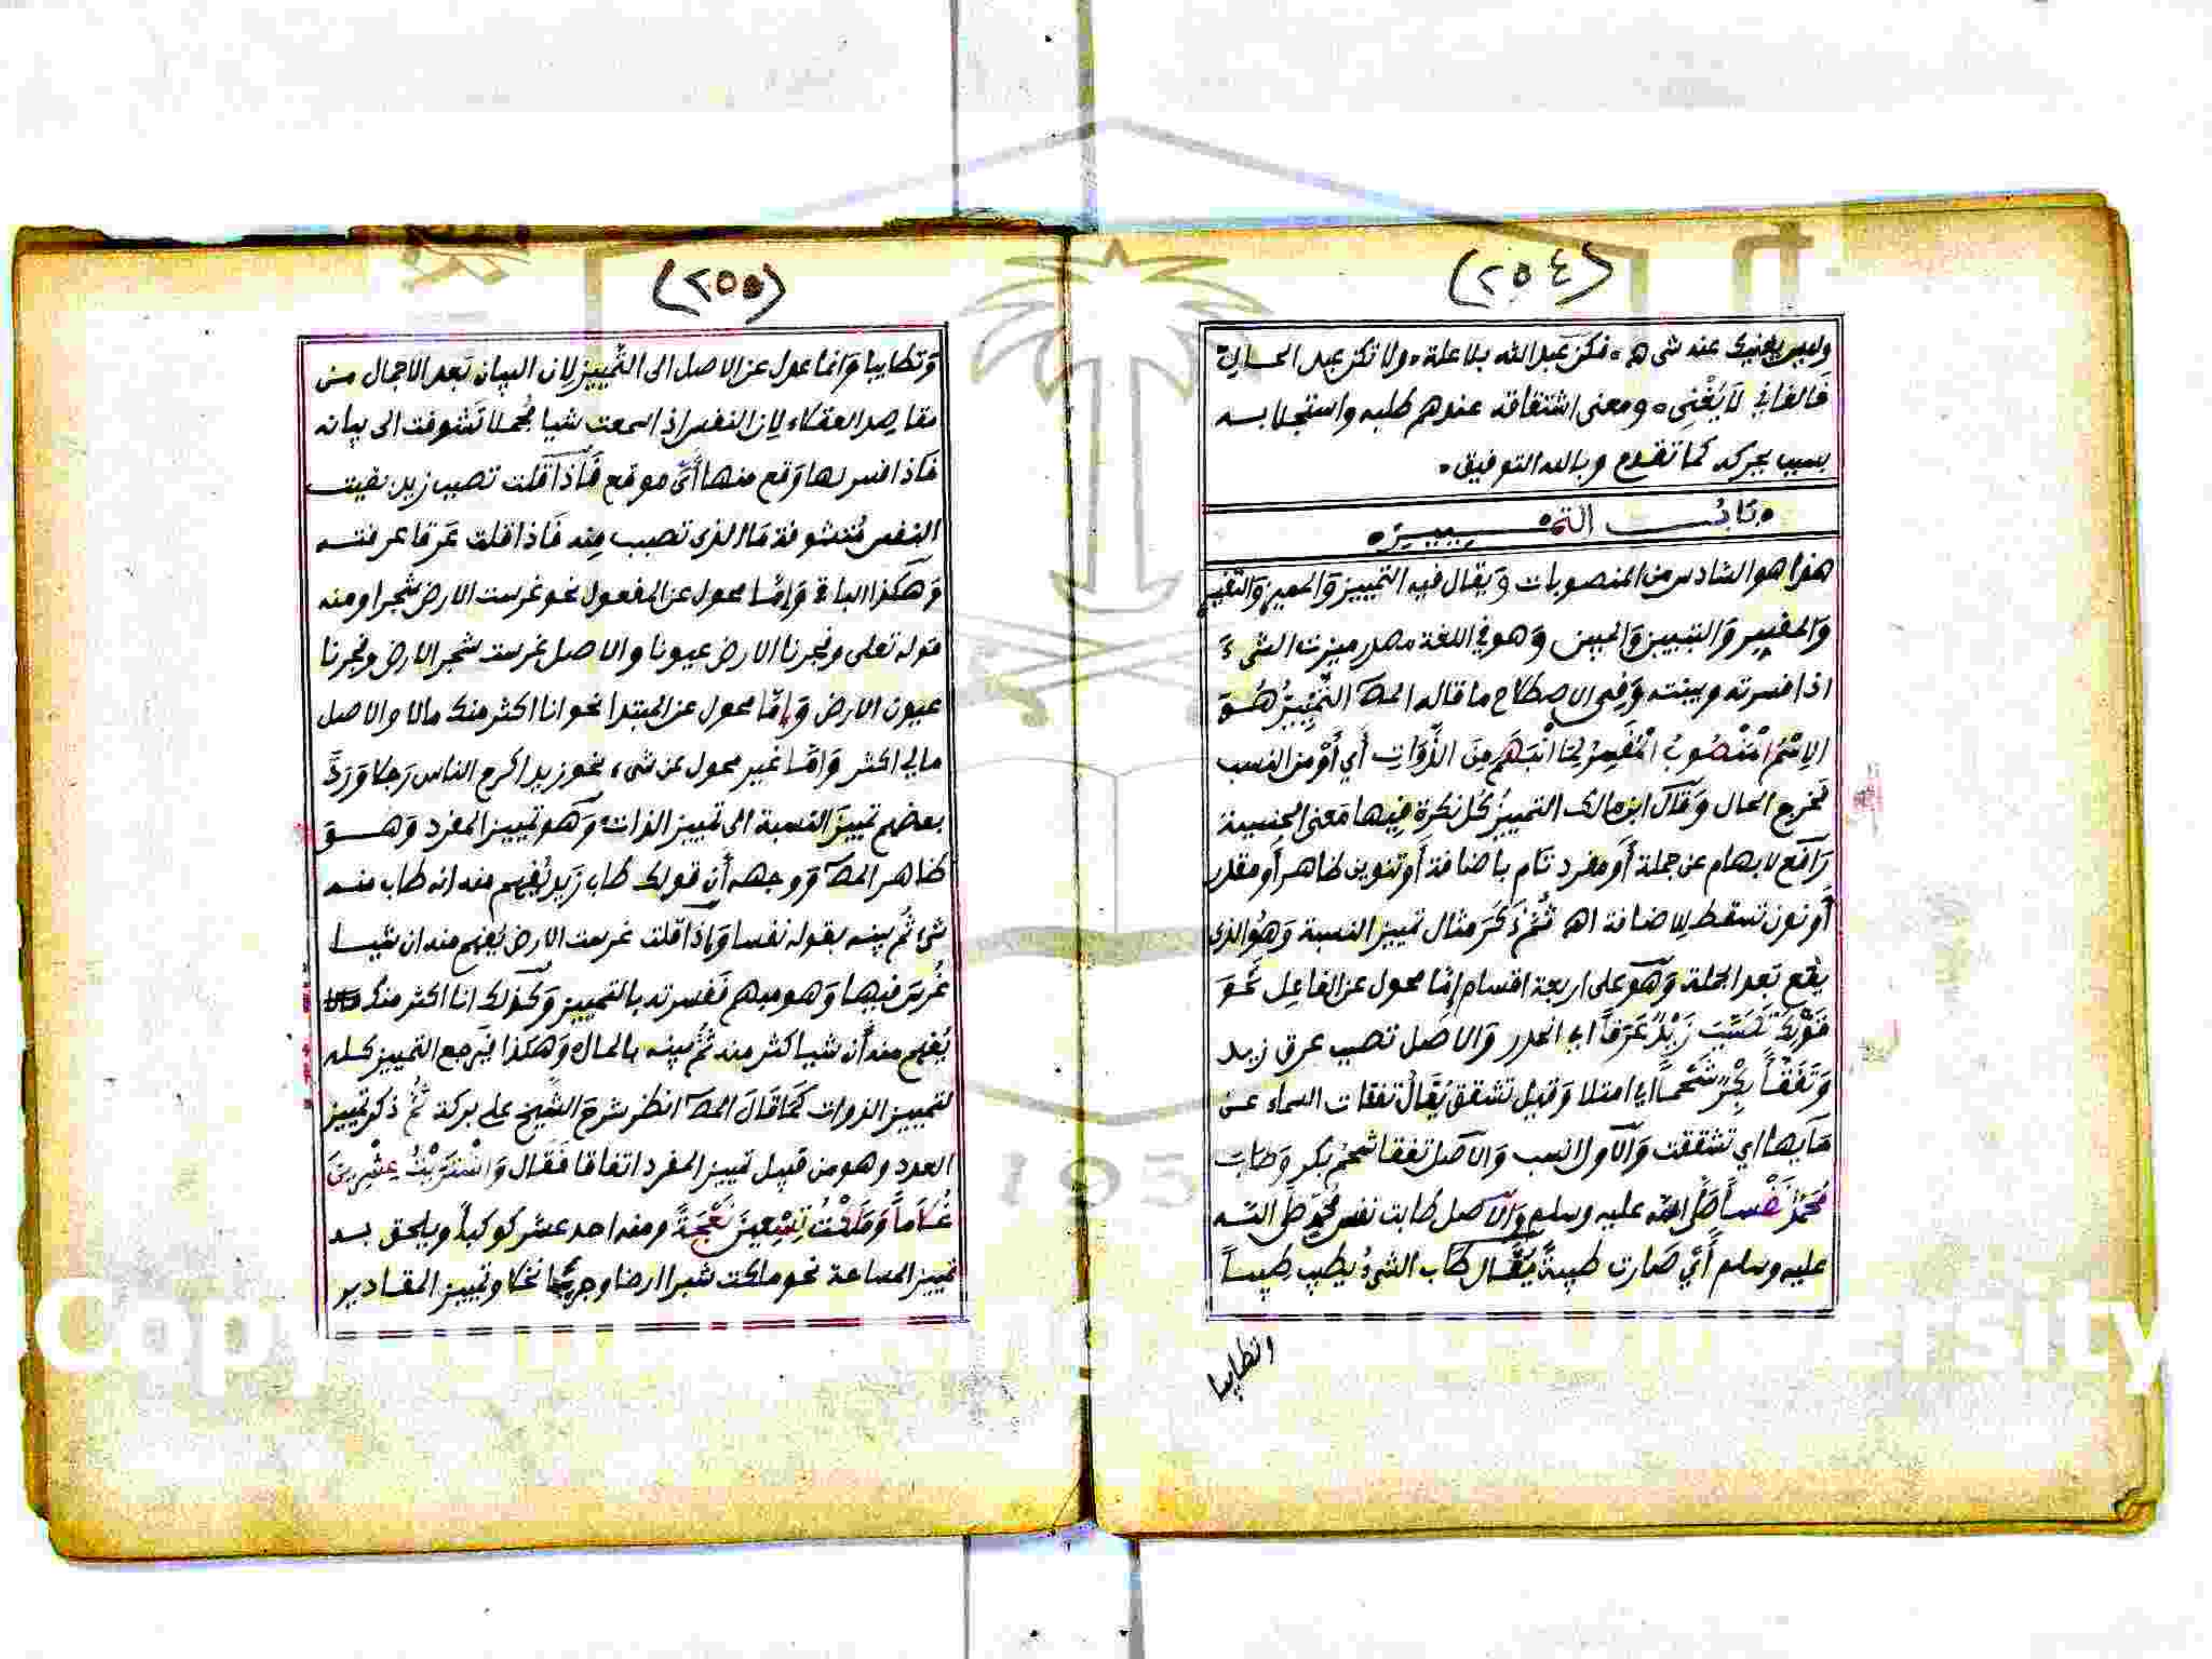 (٢٥٤)
وليس يغنيك عنه شيء فكن عبد الله بلا علة ولا تكن عبد الحال
فالفاني لا يغني ومعنى اشتقاقه عندهم طلبه واستجلابه
بسبب يحركه كما تقدم وبالله التوفيق
باب التمييز
هذا هو السادس من المنصوبات ويقال فيه التمييز والمميز والتفسير
والمفسر والتبيين والمبين وهو في اللغة مصدر ميزت الشيء
اذا فسرته وبينته وفي الاصطلاح ما قاله المص التمييز هو
الاسم المنصوب المفسر لما انبهم من الذوات أي أو من النسب
فخرج الحال وقال ابن مالك التمييز كل نكرة فيها معنى الجنسية
رافع لابهام عن جملة أو مفرد تام باضافة أو تنوين ظاهر أو مقدر
أو نون تسقط للاضافة اه ثم ذكر مثال تمييز النسبة وهو الذي
يقع بعد الجملة وهو على اربعة اقسام إما محول عن الفاعل نحو
قولك تصبب زيد عرقا اي انحدر والاصل تصبب عرق زيد
وتفقأ بكر شحما اي امتلا وقيل تشقق يقال تفقات السماء عن
مآيها اي تشققت والاول انسب والاصل تفقا شحم بكر وطاب
محمد نفسا صلى الله عليه وسلم والاصل طابت نفس محمد صلى الله
عليه وسلم أي صارت طيبة يقال طاب الشيء يطيب طيبا
وتطايبا
(٢٥٥)
وتطايبا وانما عدل عن الاصل الى التمييز لان البيان بعد الاجمال من
مقاصد العقلاء لان النفس اذا سمعت شيا مجملا تشوفت الى بيانه
فاذا فسر لها وقع منها أي موقع فاذا قلت تصبب زيد بقيت
النفس متشوفة ما الذي تصبب منه فاذا قلت عرقا عرفته
وهكذا الباقي وإما محول عن المفعول نحو غرست الارض شجرا ومنه
قوله تعلى وفجرنا الارض عيونا والاصل غرست شجر الارض وفجرنا
عيون الارض وإما محول عن المبتدا نحو انا اكثر منك مالا والاصل
مالي اكثر وإما غير محول عن شيء نحو زيد اكرم الناس رجلا ورد
بعضهم تمييز النسبة الى تمييز الذات وهو تمييز المفرد وهو
ظاهر المص ووجهه أن قولك طاب زيد يفهم منه انه طاب منه
شيء ثم بينه بقوله نفسا وإذا قلت غرست الارض يفهم منه ان شيا
غرس فيها وهو مبهم ففسرته بالتمييز وكذلك انا اكثر منك مالا
يفهم منه أن شيا كثر منه ثم بينه بالمال وهكذا فيرجع التمييز كله
لتمييز الذوات كما قال المص انظر شرح الشيخ علي بركة ثم ذكر تمييز
العدد وهو من قبيل تمييز المفرد اتفاقا فقال واشتريت عشرين
غلاما وملكت تسعين نعجة ومنه احد عشر كوكبا ويلحق به
تمييز المساحة نحو ملكت شبرا ارضا وجريبا نخلا وتمييز المقادير